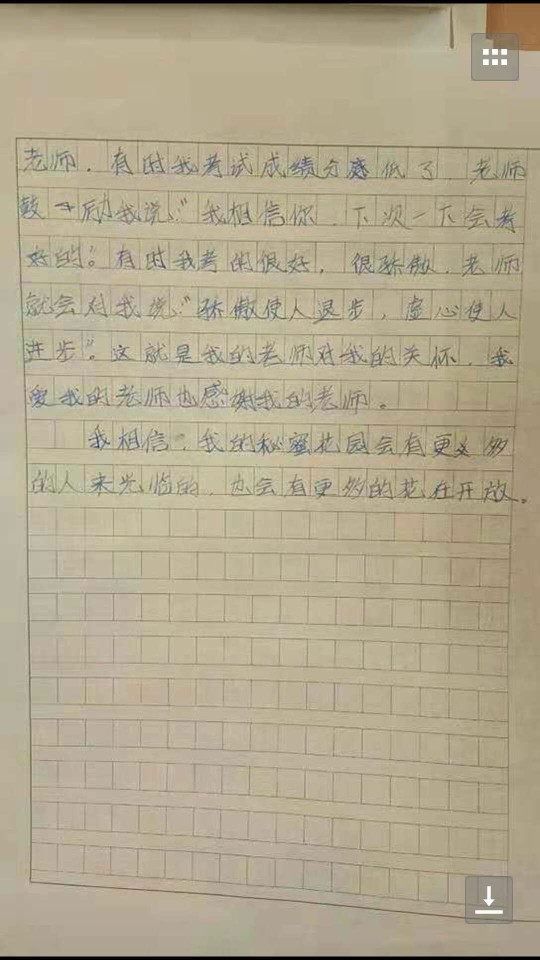 老师，有时我考试成绩分数低了，老师
鼓励我说：“我相信你，下次一下会考
好的”。有时我考的很好，很骄傲，老师
就会对我说：“骄傲使人退步，虚心使人
进步”。这就是我的老师对我的关怀，我
爱我的老师也感谢我的老师。
我相信，我的秘密花园会有更多
的人来光临的，也会有更多的花在开放。